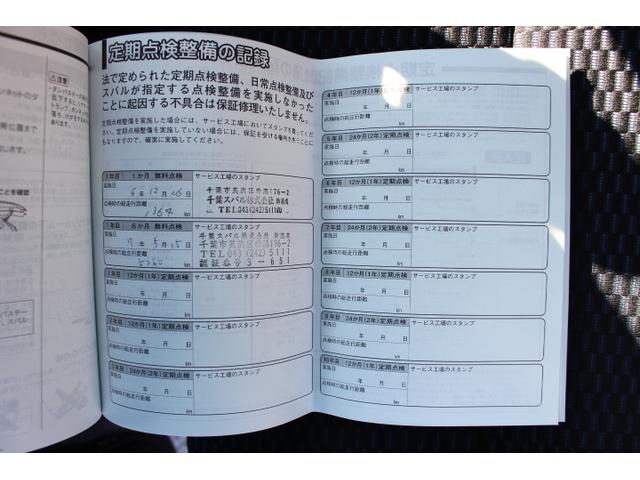 定期点検整備の記録
法で定められた定期点検整備、日常点検整備及び
スバルが指定する点検整備を実施しなかった
ことに起因する不具合は保証修理いたしません。
定期点検整備を実施した場合には、サービス工場においてスタンプを
さい。定期点検整備を実施していない場合には、保証を受ける権利を失うことに
もなりますので、確実に実施してください。
1年目 1か月 無料点検 サービス工場のスタンプ
実施日
6年12月26日
点検時の総走行距離
1,364 km
千葉スバル株式会社
TEL043(242)5111㈹
1年目 6か月 無料点検 サービス工場のスタンプ
実施日
7年5月15日
点検時の総走行距離
km
千葉スバル株式会社
TEL 043(242)5111
認証番号3-651
1年目 12か月(1年)定期点検 サービス工場のスタンプ
実施日
年 月 日
点検時の総走行距離
km
2年目 12か月(1年)定期点検 サービス工場のスタンプ
実施日
年 月 日
点検時の総走行距離
km
3年目 24か月(2年)定期点検 サービス工場のスタンプ
実施日
年 月 日
点検時の総走行距離
km
4年目 12か月(1年) サービス工場のスタンプ
実施日
年 月 日
点検時の総走行距離
km
5年目 24か月(2年)定期点検 サービス工場のスタンプ
実施日
年 月 日
点検時の総走行距離
km
6年目 12か月(1年)定期点検 サービス工場のスタンプ
実施日
年 月 日
点検時の総走行距離
km
7年目 24か月(2年)定期点検 サービス工場のスタンプ
実施日
年 月 日
点検時の総走行距離
km
8年目 12か月(1年)定期点検 サービス工場のスタンプ
実施日
年 月 日
点検時の総走行距離
km
9年目 24か月(2年)定期点検 サービス工場のスタンプ
実施日
年 月 日
点検時の総走行距離
km
10年目 12か月(1年)定期点検 サービス工場のスタンプ
実施日
年 月 日
点検時の総走行距離
km